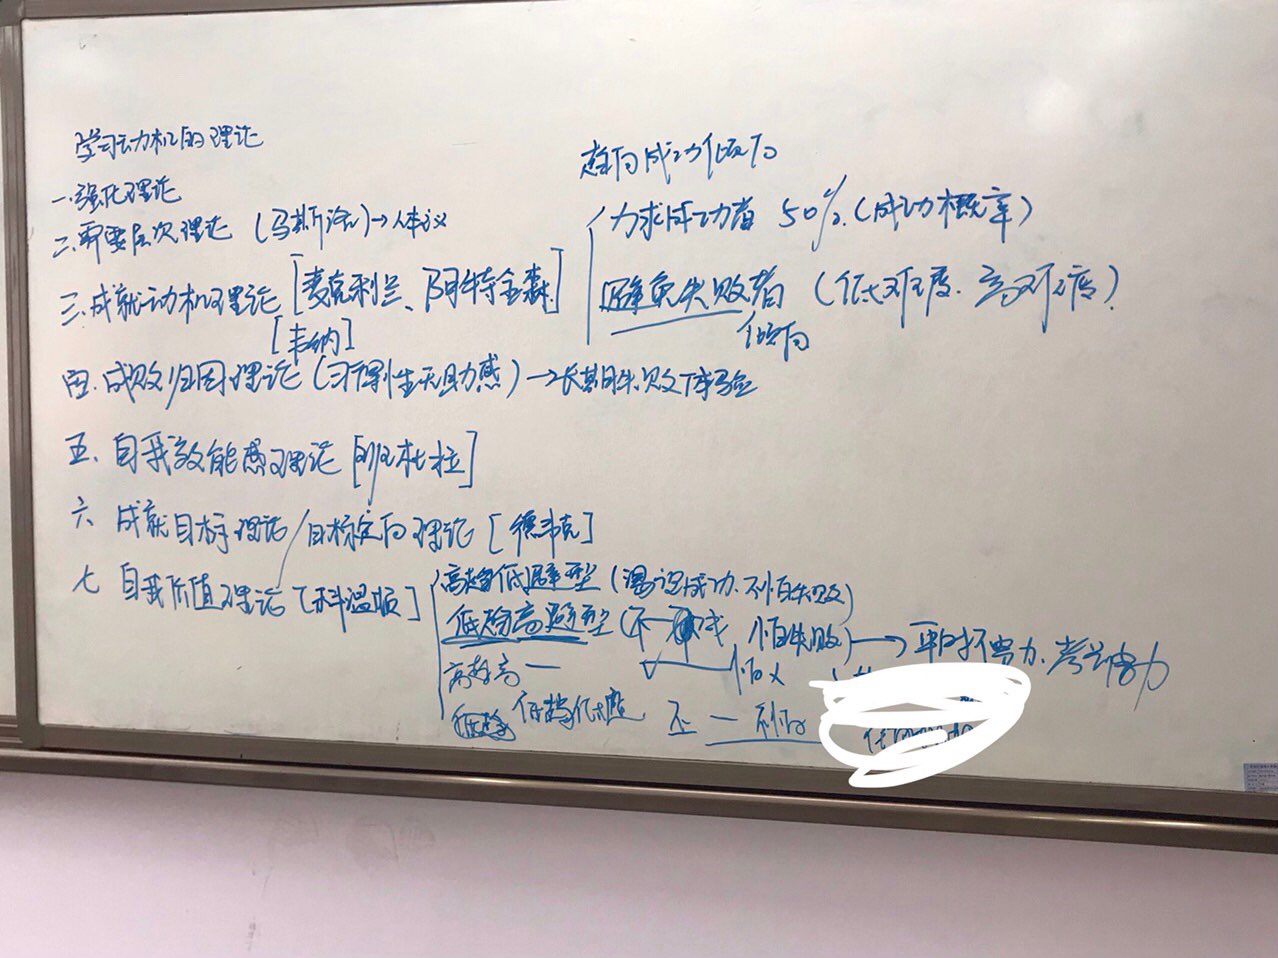 学习动机的理论
一.强化理论
二.需要层次理论 (马斯洛)→人本主义
三.成就动机理论 [麦克利兰、阿特金森]
趋向成功倾向
力求成功者 50%.(成功概率)
避免失败者 (低难度.高难度)
倾向
[韦纳]
四.成败归因理论 (习得性无助感) →长期失败体验
五、自我效能感理论 [班杜拉]
六、成就目标理论/目标定向理论 [德韦克]
七 自我价值理论 [科温顿]
高趋低避型 (渴望成功.不怕失败)
低趋高避型 (不一 成 怕失败) → 平时不努力.考前努力
高趋高一 怕
低趋低避 不一不怕